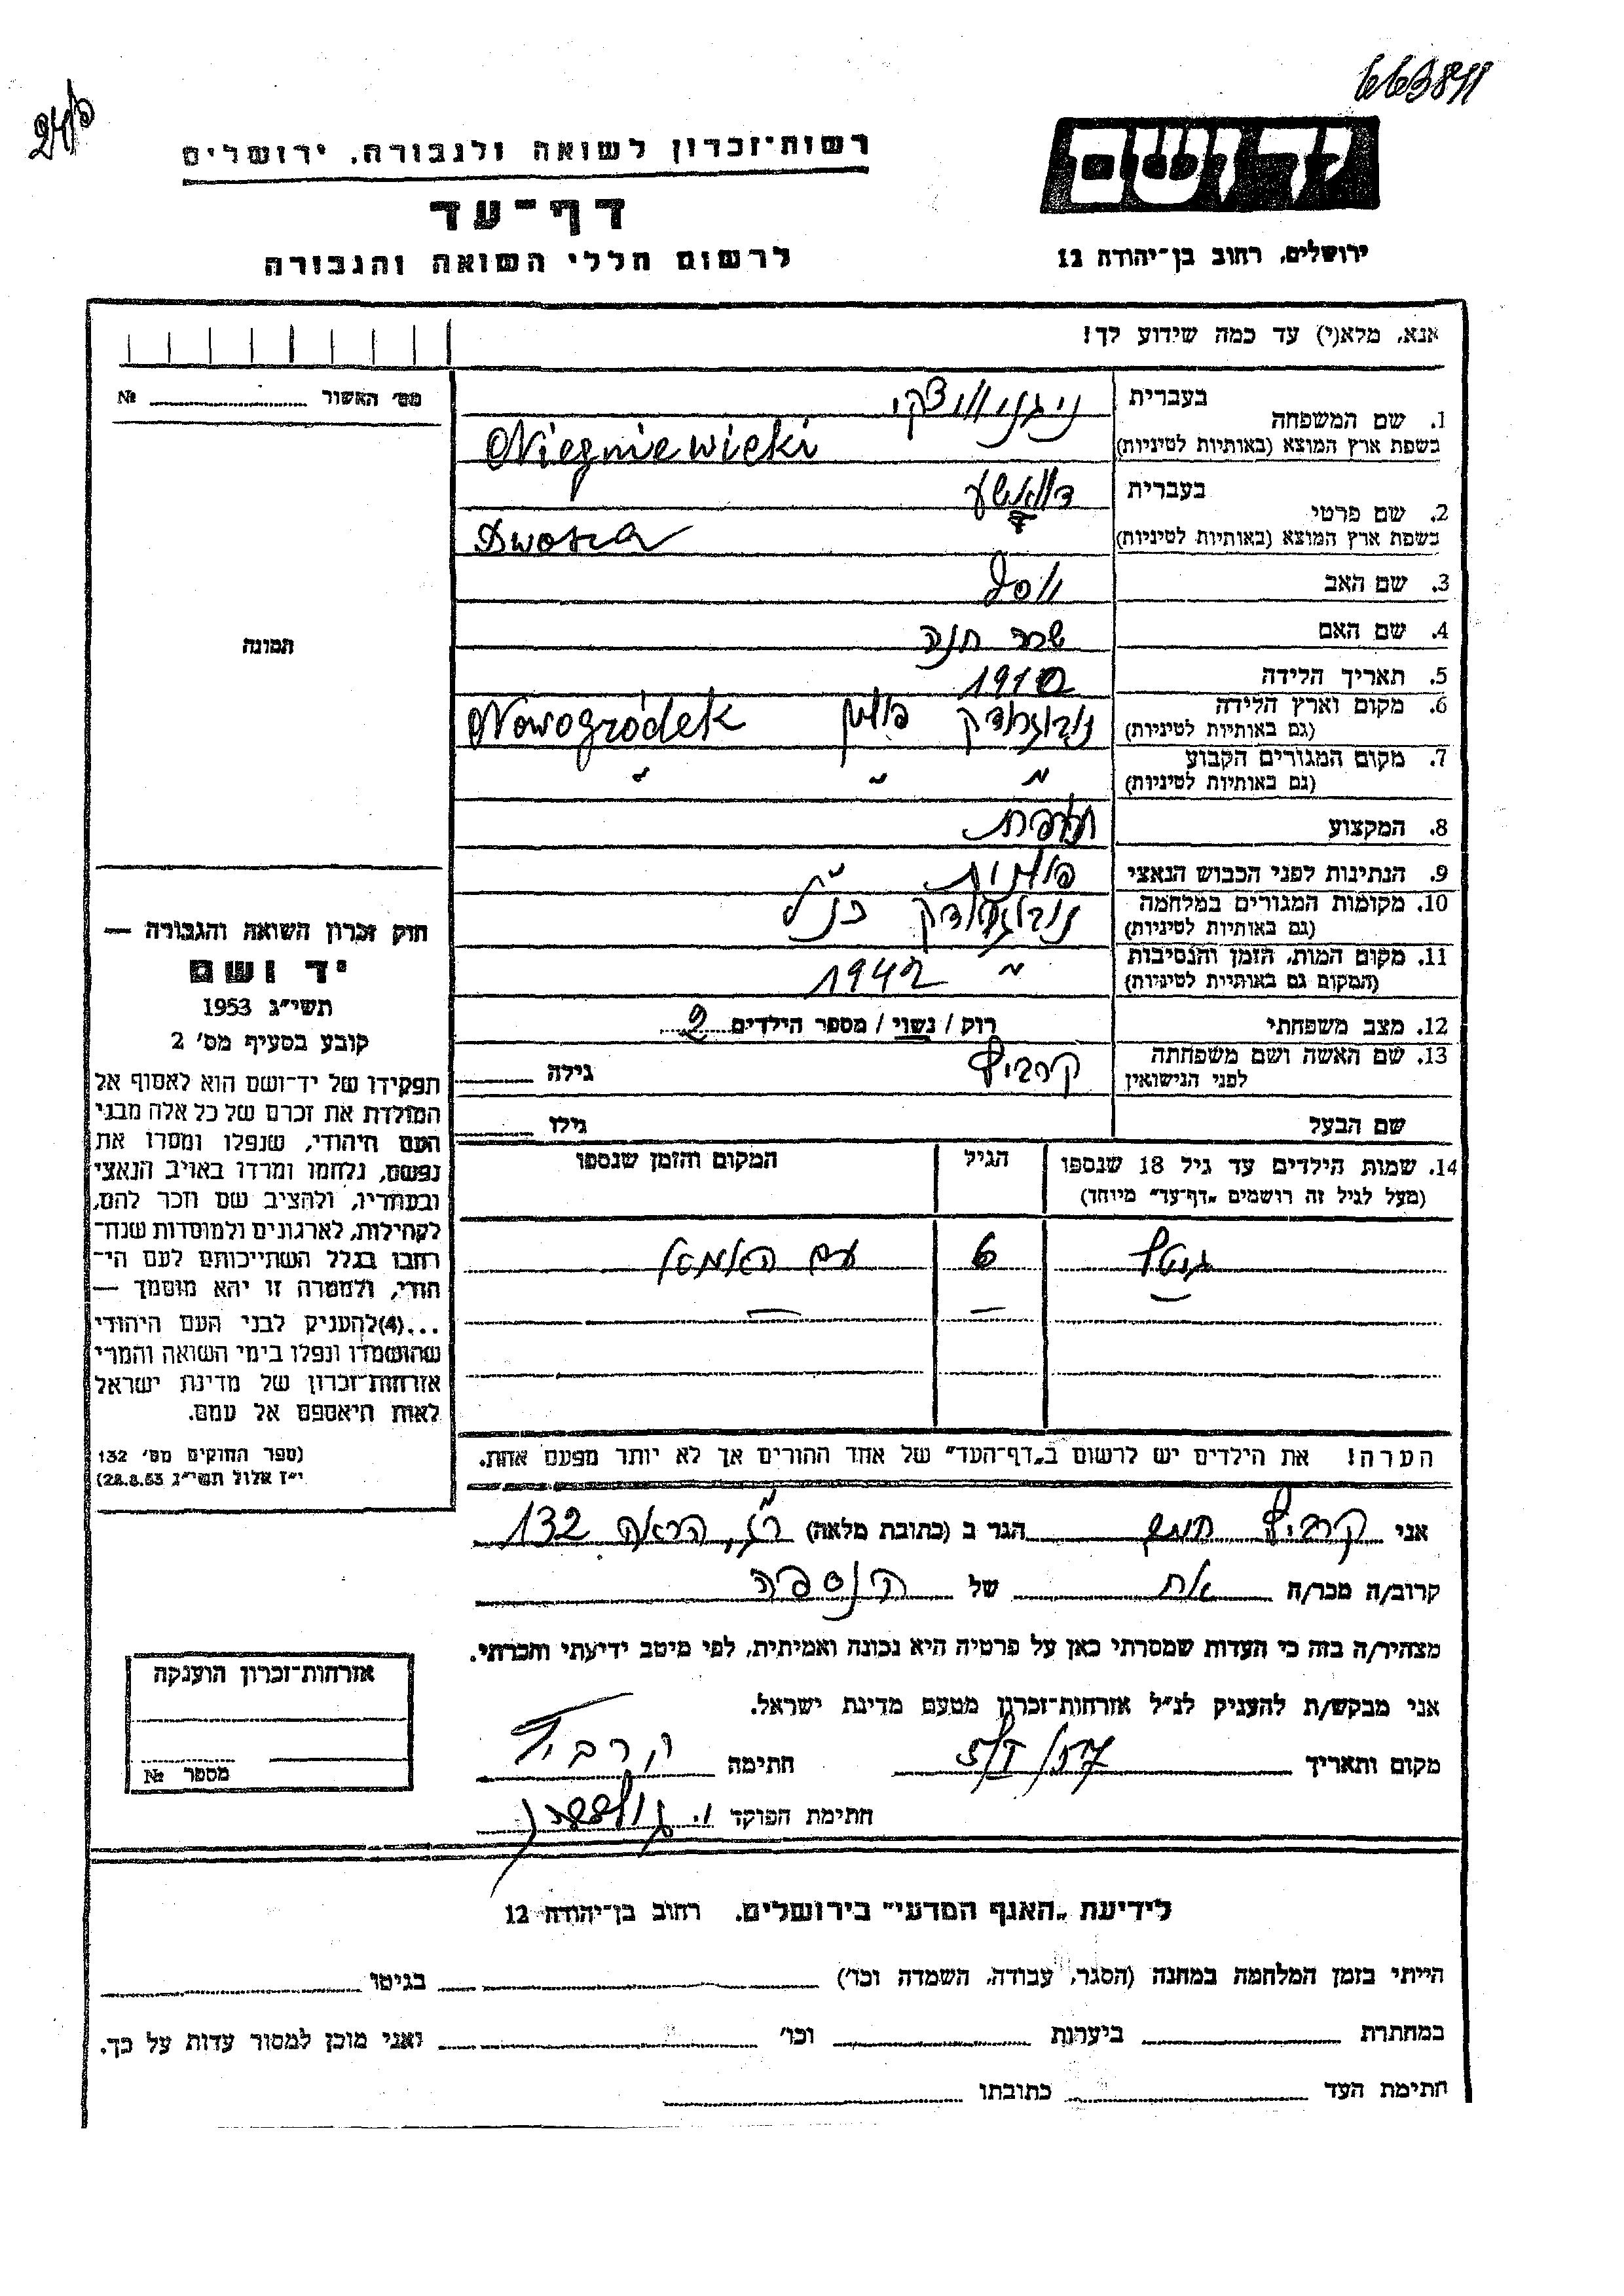 663841
רשות־זכרון לשואה ולגבורה, ירושלים
יד ושם
דף־עד
לרשום חללי השואה והגבורה
ירושלים, רחוב בן־יהודה 12
אנא, מלא(י) עד כמה שידוע לך!
מס׳ האשור № 
1. שם המשפחה בעברית
בשפת ארץ המוצא (באותיות לטיניות) Niegniewicki
2. שם פרטי בעברית
בשפת ארץ המוצא (באותיות לטיניות) Dwosza
3. שם האב יוסף
4. שם האם שרה חנה
תמונה
5. תאריך הלידה 1910
6. מקום וארץ הלידה
(גם באותיות לטיניות) נובוגרודק פולין Nowogródek
7. מקום המגורים הקבוע
(גם באותיות לטיניות) " " "
8. המקצוע תופרת
9. הנתינות לפני הכבוש הנאצי פולנית
10. מקומות המגורים במלחמה
(גם באותיות לטיניות) נובוגרודק כנ"ל
11. מקום המות, הזמן והנסיבות
(המקום גם באותיית לטיניות) " 1942
12. מצב משפחתי רוק / נשוי / מספר הילדים 2
13. שם האשה ושם משפחתה
לפני הנישואין קרביץ גילה
שם הבעל גילו
14. שמות הילדים עד גיל 18 שנספו
(מעל לגיל זה רושמים „דף־עד” מיוחד) הגיל המקום והזמן שנספו
6 עם האמא
הערה! את הילדים יש לרשום ב„דף־העד” של אחד ההורים אך לא יותר מפעם אחת.
חוק זכרון השואה והגבורה —
יד ושם
תשי״ג 1953
קובע בסעיף מס׳ 2
תפקידו של יד־ושם הוא לאסוף אל
המולדת את זכרם של כל אלה מבני
העם היהודי, שנפלו ומסרו את
נפשם, נלחמו ומרדו באויב הנאצי
ובעוזריו, ולהציב שם וזכר להם,
לקהילות, לארגונים ולמוסדות שנח־
רחבו בגלל השתייכותם לעם הי־
הודי, ולמטרה זו יהא מוסמך —
...(4) להעניק לבני העם היהודי
שהושמדו ונפלו בימי השואה והמרי
אזרחות־זכרון של מדינת ישראל
לאות היאספם אל עמם.
(ספר החוקים מס׳ 132
י״ז אלול תשי״ג 28.8.53)
אני קרביץ הגר ב (כתובת מלאה) ר"ג, הרואה 132
קרוב/ה מכר/ה אח של הנספה
מצהיר/ה בזה כי העדות שמסרתי כאן על פרטיה היא נכונה ואמיתית, לפי מיטב ידיעתי והכרתי.
אני מבקש/ת להעניק לנ״ל אזרחות־זכרון מטעם מדינת ישראל.
מקום ותאריך חתימה קרביץ
חתימת הפוקד
אזרחות־זכרון הוענקה
מספר №
לידיעת „האגף המדעי” בירושלים. רחוב בן־יהודה 12
הייתי בזמן המלחמה במחנה (הסגר, עבודה, השמדה וכו׳) בגיטו
במחתרת ביערות וכו׳ ואני מוכן למסור עדות על כך.
חתימת העד כתובתו